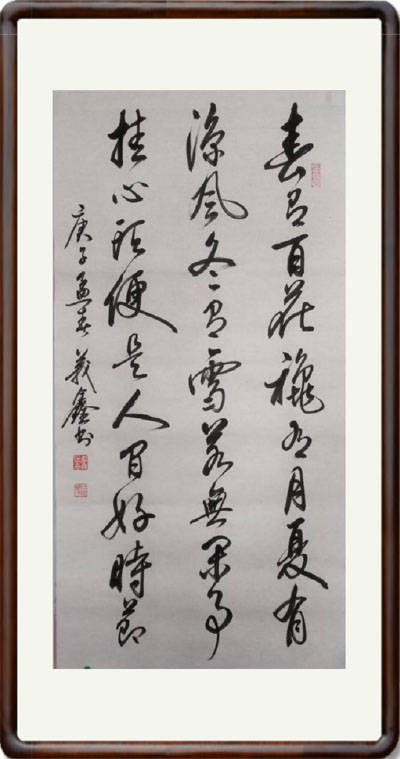 春有百花龝有月夏有
涼風冬有雪若無閑事
挂心頭便是人间好時節
庚子孟春義鑫书